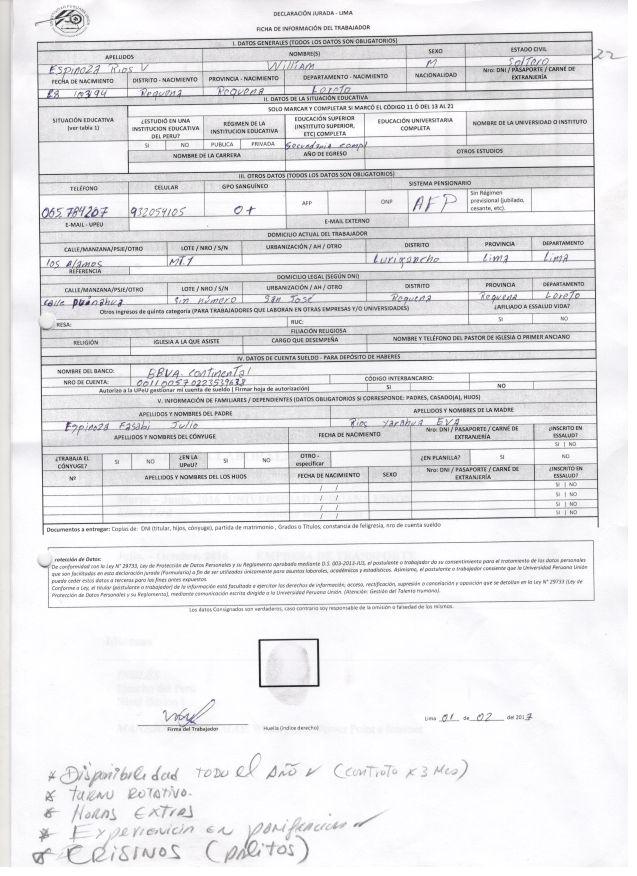 DECLARACIÓN JURADA - LIMA
FICHA DE INFORMACIÓN DEL TRABAJADOR
22
I. DATOS GENERALES (TODOS LOS DATOS SON OBLIGATORIOS)
APELLIDOS NOMBRE(S) SEXO ESTADO CIVIL
Espinoza Rios V William M Soltero
FECHA DE NACIMIENTO DISTRITO - NACIMIENTO PROVINCIA - NACIMIENTO DEPARTAMENTO - NACIMIENTO NACIONALIDAD Nro: DNI / PASAPORTE / CARNÉ DE EXTRANJERÍA
Requena Requena Loreto
II. DATOS DE LA SITUACIÓN EDUCATIVA
SOLO MARCAR Y COMPLETAR SI MARCÓ EL CÓDIGO 11 Ó DEL 13 AL 21
SITUACIÓN EDUCATIVA (ver tabla 1) ¿ESTUDIÓ EN UNA INSTITUCION EDUCATIVA DEL PERU? RÉGIMEN DE LA INSTITUCION EDUCATIVA EDUCACIÓN SUPERIOR (INSTITUTO SUPERIOR, ETC) COMPLETA EDUCACIÓN UNIVERSITARIA COMPLETA NOMBRE DE LA UNIVERSIDAD O INSTITUTO
SI NO PUBLICA PRIVADA Secundaria compl
NOMBRE DE LA CARRERA AÑO DE EGRESO OTROS ESTUDIOS
III. OTROS DATOS (TODOS LOS DATOS SON OBLIGATORIOS)
TELÉFONO CELULAR GPO SANGUÍNEO SISTEMA PENSIONARIO
065 784207 932054105 O+ AFP ONP AFP Sin Régimen previsional (jubilado, cesante, etc).
E-MAIL - UPEU E-MAIL EXTERNO
DOMICILIO ACTUAL DEL TRABAJADOR
CALLE/MANZANA/PSJE/OTRO LOTE / NRO / S/N URBANIZACIÓN / AH / OTRO DISTRITO PROVINCIA DEPARTAMENTO
los Alamos MT.1 Lurigancho Lima Lima
REFERENCIA DOMICILIO LEGAL (SEGÚN DNI)
CALLE/MANZANA/PSJE/OTRO LOTE / NRO / S/N URBANIZACIÓN / AH / OTRO DISTRITO PROVINCIA DEPARTAMENTO
calle sin número san José Requena Requena Loreto
Otros ingresos de quinto categoría (PARA TRABAJADORES QUE LABORAN EN OTRAS EMPRESAS Y/O UNIVERSIDADES) ¿AFILIADO A ESSALUD VIDA?
RESA: RUC: SI NO
FILIACIÓN RELIGIOSA
RELIGIÓN IGLESIA A LA QUE ASISTE CARGO QUE DESEMPEÑA NOMBRE Y TELÉFONO DEL PASTOR DE IGLESIA O PRIMER ANCIANO
IV. DATOS DE CUENTA SUELDO - PARA DEPÓSITO DE HABERES
NOMBRE DEL BANCO: BBVA. continental
NRO DE CUENTA: 001100570223539638 CÓDIGO INTERBANCARIO:
Autorizo a la UPeU gestionar mi cuenta de sueldo ( Firmar hoja de autorización) SI NO
V. INFORMACIÓN DE FAMILIARES / DEPENDIENTES (DATOS OBLIGATORIOS SI CORRESPONDE: PADRES, CASADO(A), HIJOS)
APELLIDOS Y NOMBRES DEL PADRE APELLIDOS Y NOMBRES DE LA MADRE
Espinoza Fasabi Julio Rios Yarahua EVA
APELLIDOS Y NOMBRES DEL CÓNYUGE FECHA DE NACIMIENTO Nro: DNI / PASAPORTE / CARNÉ DE EXTRANJERÍA ¿INSCRITO EN ESSALUD?
SI | NO
¿TRABAJA EL CÓNYUGE? SI NO ¿EN LA UPeU? SI NO OTRO - especificar ¿EN PLANILLA? SI NO
Nº APELLIDOS Y NOMBRES DEL LOS HIJOS FECHA DE NACIMIENTO SEXO Nro: DNI / PASAPORTE / CARNÉ DE EXTRANJERÍA ¿INSCRITO EN ESSALUD?
/ / SI | NO
/ / SI | NO
/ / SI | NO
/ / SI | NO
Documentos a entregar: Copias de: DNI (titular, hijos, cónyuge), partida de matrimonio , Grados o Títulos, constancia de feligresía, nro de cuenta sueldo
rotección de Datos:
De conformidad con la Ley N° 29733, Ley de Protección de Datos Personales y su Reglamento aprobado mediante D.S. 003-2013-JUS, el postulante o trabajador da su consentimiento para el tratamiento de los datos personales
que son facilitados en esta declaración jurada (Formulario) a fin de ser utilizados únicamente para asuntos laborales, académicos y estadísticos. Asimismo, el postulante o trabajador consiente que la Universidad Peruana Unión
pueda ceder estos datos a terceros para los fines antes expuestos.
Conforme a Ley, el titular (postulante o trabajador) de la información está facultado a ejercitar los derechos de información, acceso, rectificación, supresión o cancelación y oposición que se detallan en la Ley N° 29733 (Ley de
Protección de Datos Personales y su Reglamento), mediante comunicación escrita dirigido a la Universidad Peruana Unión. (Atención: Gestión del Talento Humano).
Los datos Consignados son verdaderos, caso contrario soy responsable de la omisión o falsedad de los mismos.
Lima 01 de 02 del 2017
Firma del Trabajador Huella (índice derecho)
* Disponibilidad TODO el AÑO (contrato x 3 Mes)
* TURNO ROTATIVO.
* HORAS EXTRAS
* Experiencia en panificación
* CRISINOS (palitos)